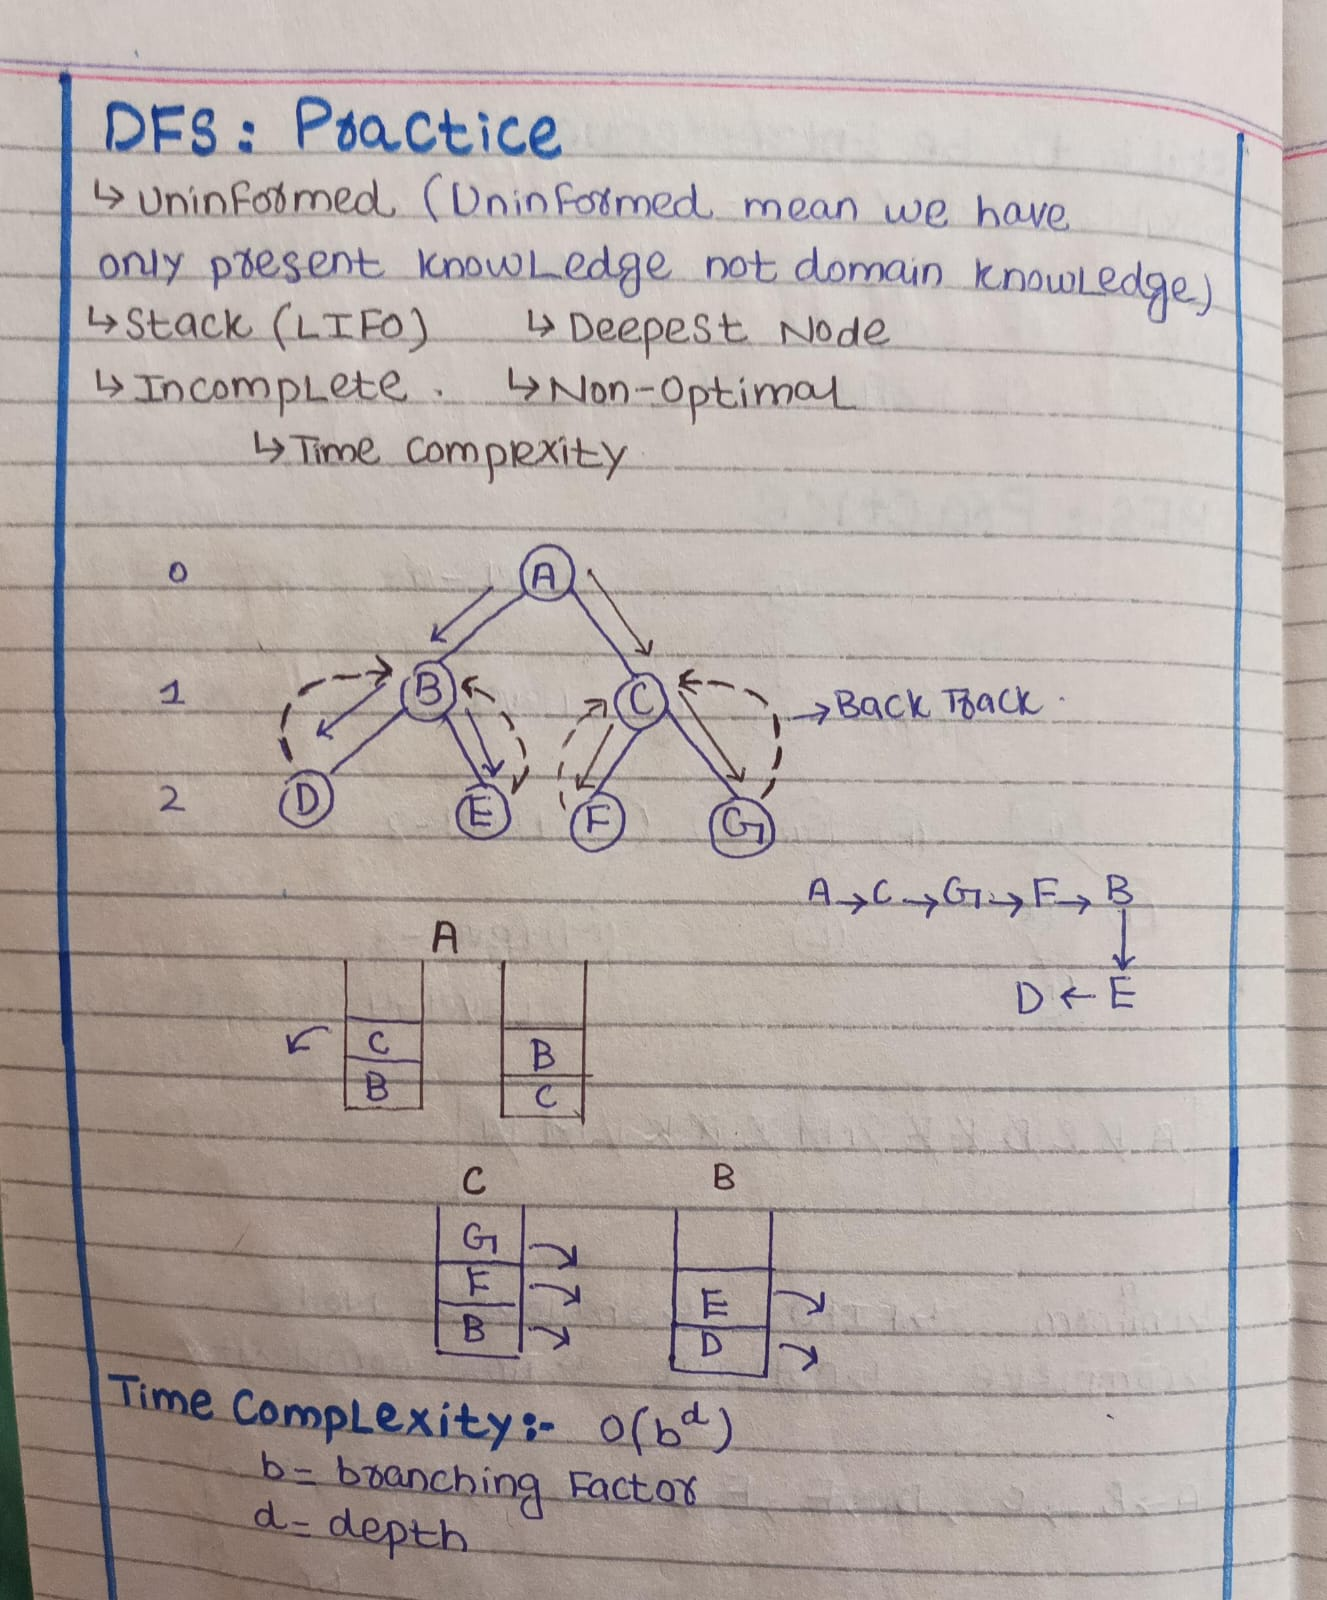 DFS: Practice
↳ Uninformed (Uninformed mean we have
only present knowledge not domain knowledge)
↳ Stack (LIFO) ↳ Deepest Node
↳ Incomplete. ↳ Non-Optimal
↳ Time compexity
0 A
1 B C → Back Track.
2 D E F G
A → C → G → F → B
↓
D ← E
A
C B
B C
C B
G
F E
B D
Time Complexity:- O(b^d)
b = branching Factor
d = depth